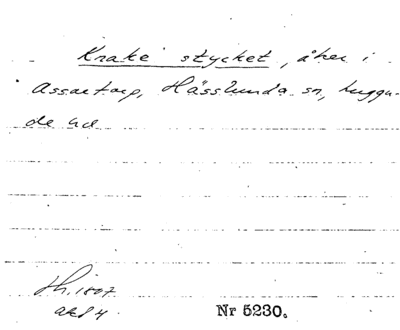 Krake stycket, åker i
Assartorp, Hässlunda sn, Luggu-
de hd
Sk. 1807
akt 4
Nr 5230.